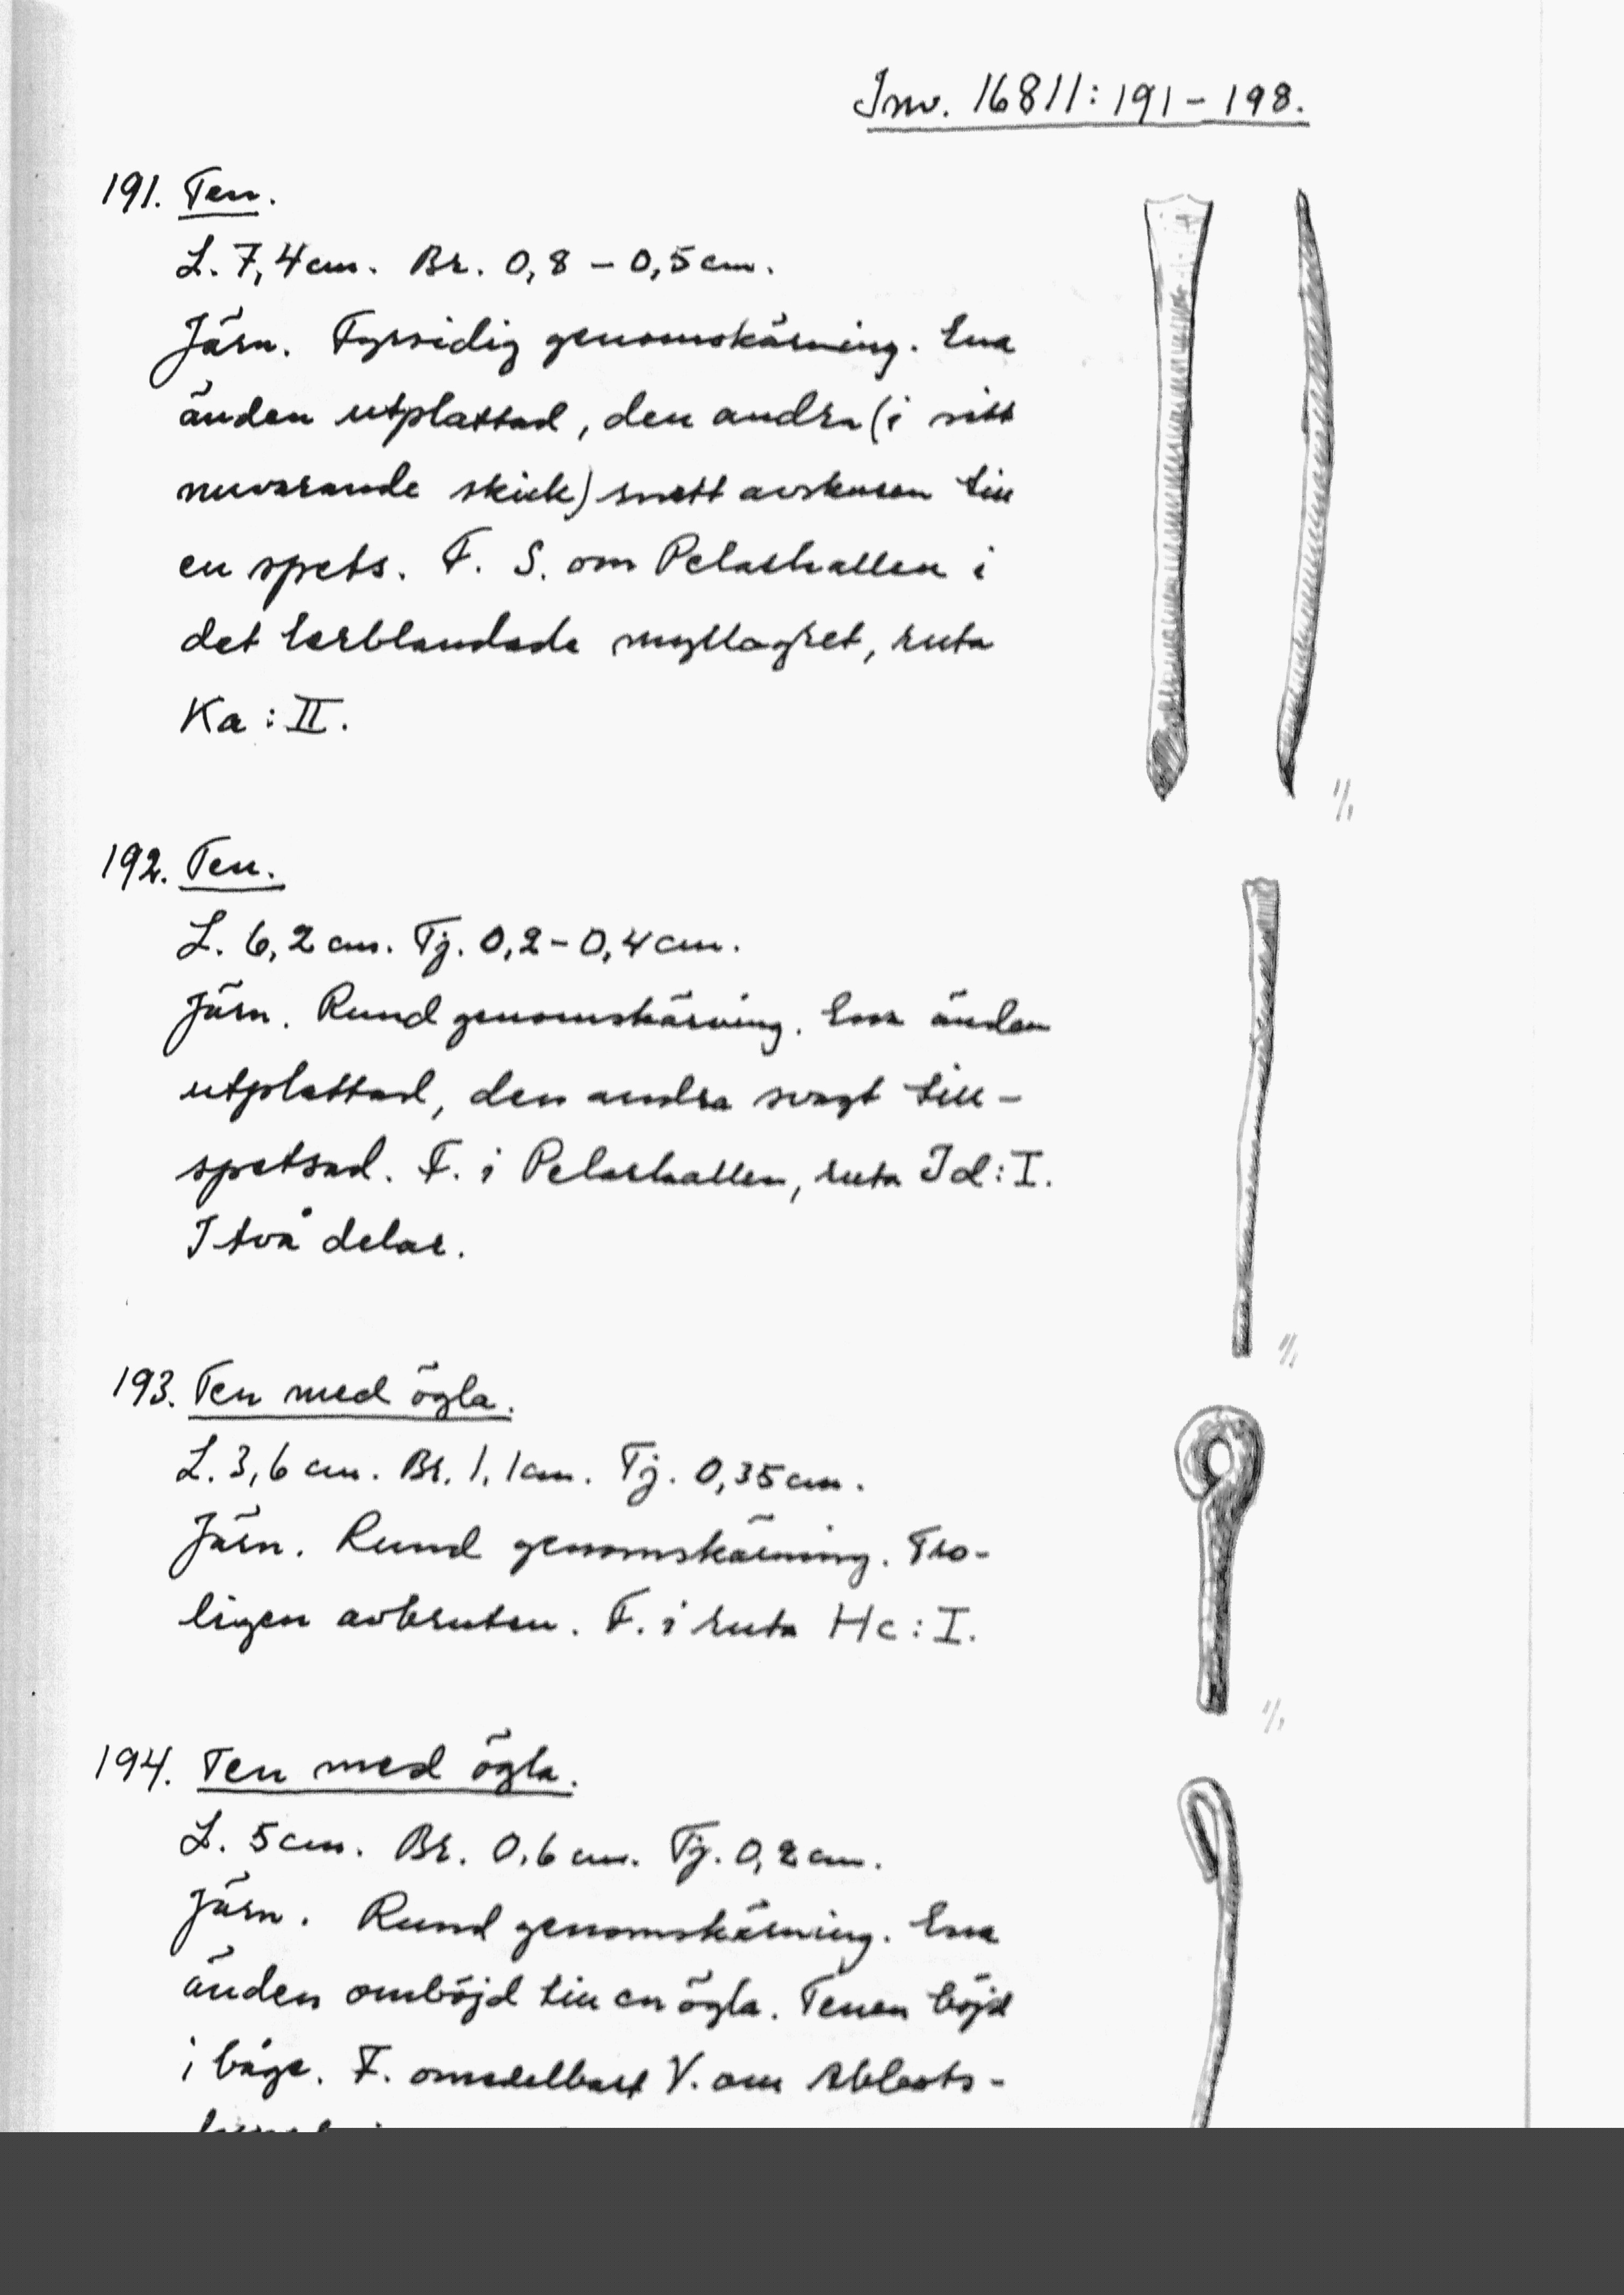 Inv. 16811:191–198.
191. Ten.
L. 7,4 cm. Br. 0,8 – 0,5 cm.
Järn. Fyrsidig genomskärning. Ena
änden utplattad, den andra (i sitt
nuvarande skick) snett avskuren till
en spets. F. S. om Pelarhallen i
det lerblandade myllagret, ruta
Ka : II.
1/1
192. Ten.
L. 6,2 cm. Tj. 0,2 – 0,4 cm.
Järn. Rund genomskärning. Ena änden
utplattad, den andra svagt till-
spetsad. F. i Pelarhallen, ruta Id : I.
I två delar.
1/1
193. Ten med ögla.
L. 3,6 cm. Br. 1,1 cm. Tj. 0,35 cm.
Järn. Rund genomskärning. Tro-
ligen avbruten. F. i ruta Hc : I.
1/1
194. Ten med ögla.
L. 5 cm. Br. 0,6 cm. Tj. 0,2 cm.
Järn. Rund genomskärning. Ena
änden omböjd till en ögla. Tenen böjd
i båge. F. omedelbart V. om Abbots-